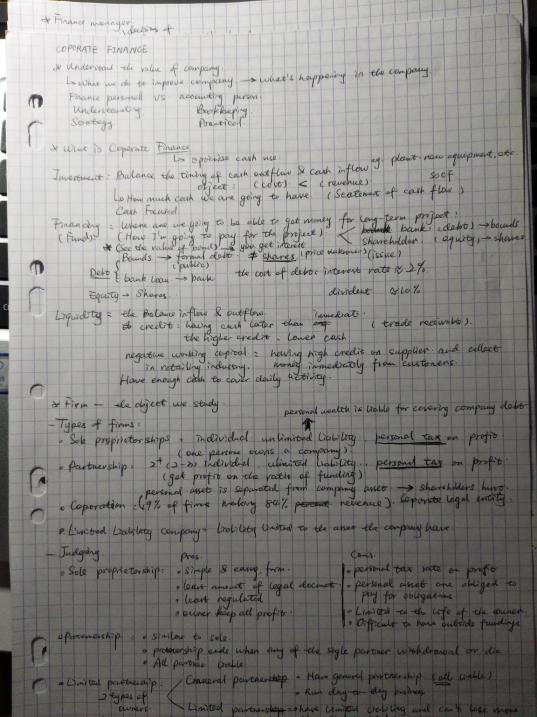 * Finance manager
decisions +
COPORATE FINANCE
* Understand the value of company.
↳ What we do to improve company → what's happening in the company.
Finance personell VS accounting person.
Understanding Bookkeeping
Strategy Practical.
* What is Coporate Finance
↳ optimise cash use
Investment: Balance the timing of cash outflow & cash inflow eg. plant. new equipment, etc.
object: (cost) < (revenue) SOCF
↳ How much cash we are going to have (Statement of cash flow)
Cash focused
Financing = Where are we going to be able to get money for long-term project?
(Funds) (How I'm going to pay for the project) < bank (debt) → bounds
shareholder (equity) → shares
* (See the value of bond) → you get interest (issue)
Debt { Bounds → formal debt ≠ shares (price unknown)
(public)
bank loan → bank the cost of debt: interest rate ≈ 2%
Equity → Shares. divident ≈ 10%
Liquidity = the balance inflow & outflow. immediate.
credit: having cash later than (trade receivable).
the higher credit. lower cash
negative working capital = having high credit on supplier and collect
in retailing industry. money immediately from customers.
Have enough cash to cover daily activity.
* Firm — the object we study.
personal wealth is liable for covering company debt
- Types of firms:
• Sole proprietorships = individual unlimited liability. personal tax on profit
(one person owns a company).
• Partnership: 2+ (2-20) individual. unlimited liability. personal tax on profit.
(get profit on the ratio of funding)
personal asset is separated from company asset → shareholders have.
• Coporation: (19% of firms making 84% revenue). Separate legal entity.
• Limited Liability Company = Liability limited to the asset the company have.
- Judging. Pros. Cons.
• Sole proprietorship: • Simple & easy firm. • personal tax rate on profit
• least amount of legal document • personal asset are obliged to
pay for obligations
• least regulated
• owner keep all profit. • Limited to the life of the owner
• Difficult to have outside fundings
• Partnership: • Similar to sole.
• partnership ends when any of the single partner withdrawal or die
• All partner liable
• Limited partnership: General partner • Have general partnership (all liable)
2 types of • Run day-to-day business
owners. Limited partner = have limited liability and can't lose more